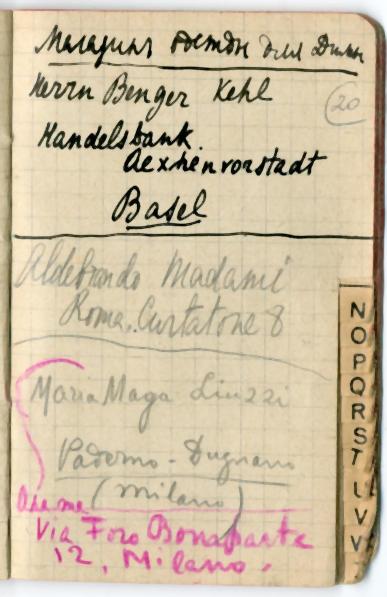 20
Herrn Benger Kehl
Handelsbank.
Aexhenvorstadt
Basel
Aldebrando Madami
Roma. Curtatone 8
Maria Maga Liuzzi
Paderno - Dugnano
(Milano)
Via Foro Bonaparte
12, Milano.
N
O
P
Q
R
S
T
U
V